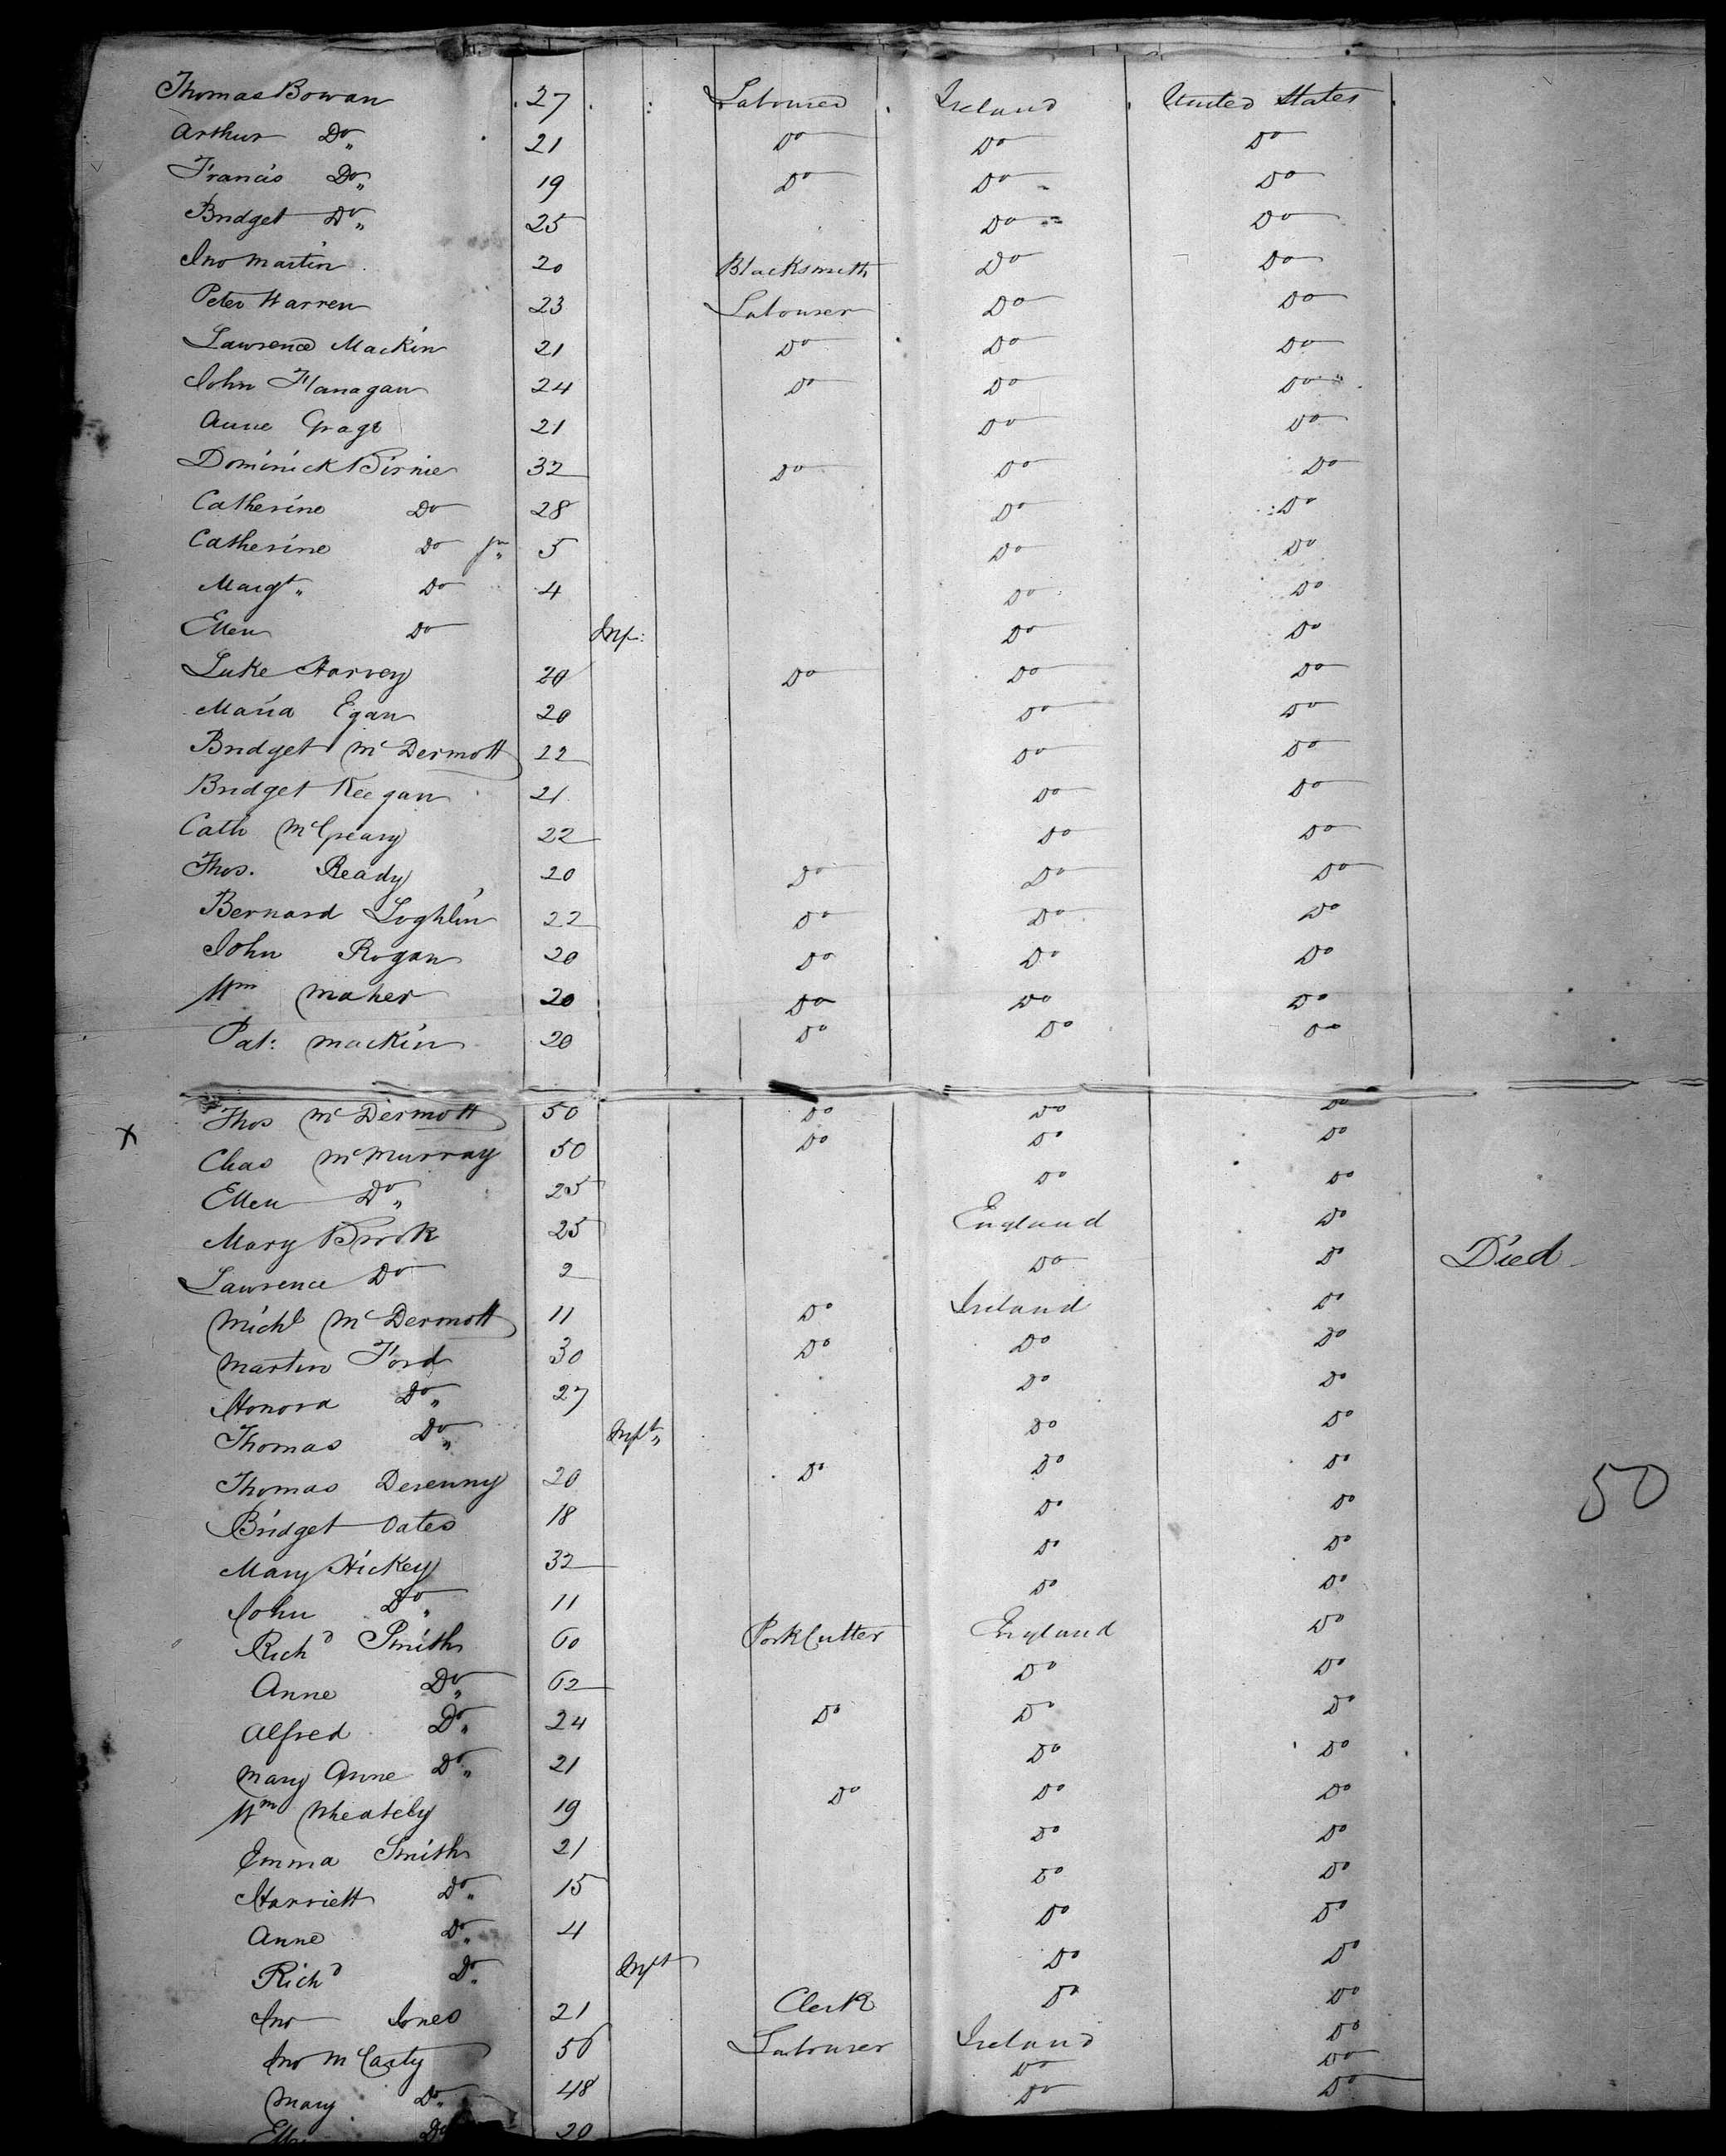 Thomas Bowan 27 Labourer Ireland United States
Arthur Do 21 Do Do Do
Francis Do 19 Do Do Do
Bridget Do 25 Do Do
Jno Martin 20 Blacksmith Do Do
Peter Warren 23 Labourer Do Do
Lawrence Mackin 21 Do Do Do
John Flanagan 24 Do Do Do
Anne 21 Do Do
Dominick Birnie 32 Do Do Do
Catherine Do 28 Do Do
Catherine Do Jnr 5 Do Do
Margt Do 4 Do Do
Ellen Do Inf: Do Do
Luke Harvey 20 Do Do Do
Maria Egan 20 Do Do
Bridget McDermott 22 Do Do
Bridget Keegan 21 Do Do
Cath McGreary 22 Do Do
Thos. Ready 20 Do Do Do
Bernard Loghlin 22 Do Do Do
John Rogan 20 Do Do Do
Wm Maher 20 Do Do Do
Pat: Mackin 20 Do Do Do
Thos McDermott 50 Do Do Do
x Chas McMurray 50 Do Do Do
Ellen Do 25 Do Do
Mary Brook 25 England Do
Lawrence Do 2 Do Do Died
Michl McDermott 11 Do Ireland Do
Martin Ford 30 Do Do Do
Honora Do 27 Do Do
Thomas Do Inft Do Do
Thomas Derenny 20 Do Do Do
Bridget Oates 18 Do Do
50
Mary Hickey 32 Do Do
John Do 11 Do Do
Richd Smith 60 Pork Cutter England Do
Anne Do 62 Do Do
Alfred Do 24 Do Do Do
Mary Anne Do 21 Do Do
Wm Wheately 19 Do Do Do
Emma Smith 21 Do Do
Harriett Do 15 Do Do
Anne Do 4 Do Do
Richd Do Inft Do Do
Jno Jones 21 Clerk Do Do
Jno McCarty 50 Labourer Ireland Do
Mary Do 48 Do Do
Do 20 Do Do